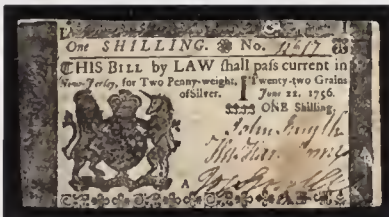 One SHILLING. No. 4617
THIS BILL by LAW ſhall paſs current in
New-Jerſey, for Two Penny-weight, Twenty-two Grains
of Silver. June 22. 1756.
ONE Shilling.
John Smyth
A